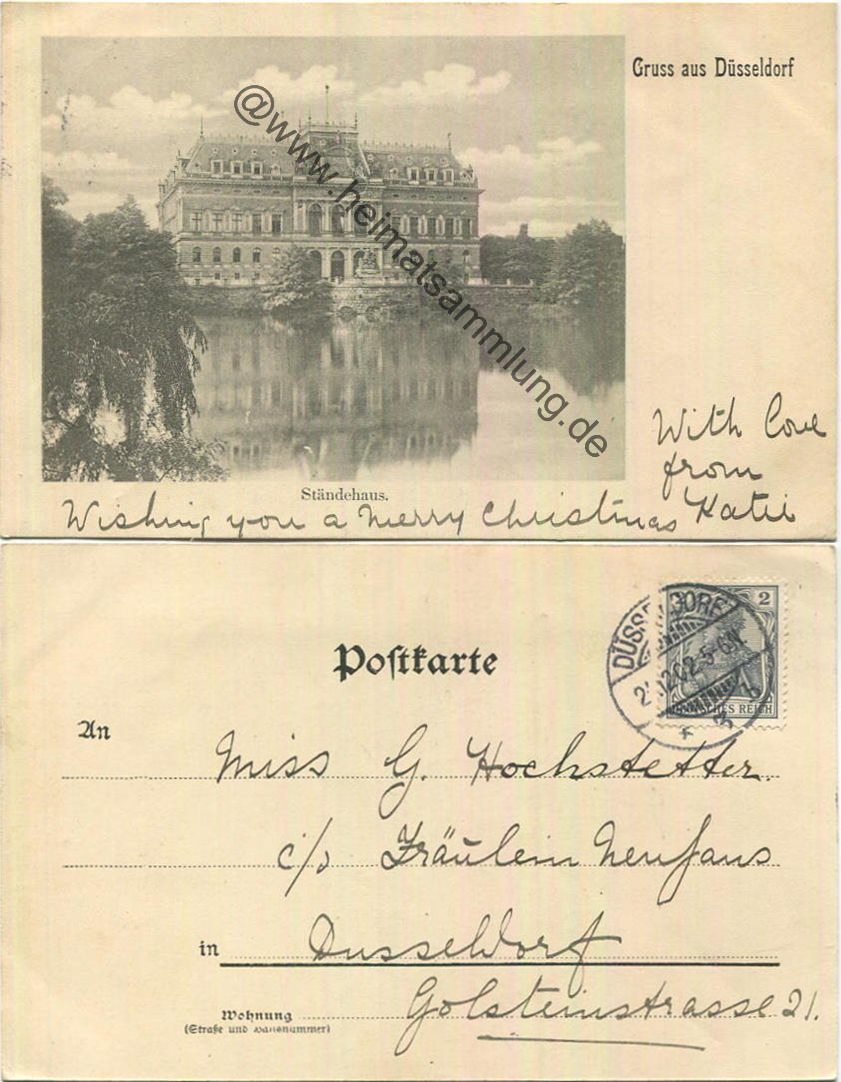 Gruss aus Düsseldorf
@www.heimatsammlung.de
Ständehaus.
With love
from
Katie
Wishing you a Merry Christmas
Postkarte
2
DÜSSELDORF
.12.02.5-6N.
DEUTSCHES REICH
An
Miss G. Hochstetter.
c/o Fräulein Neuhaus
in Dusseldorf
Wohnung Golsteinstrasse 21.
(Straße und Hausnummer)